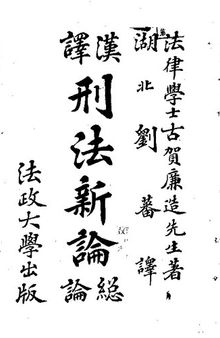 法律學士古賀廉造先生著
湖北劉蕃譯
漢譯
刑法新論
總論
法政大學出版